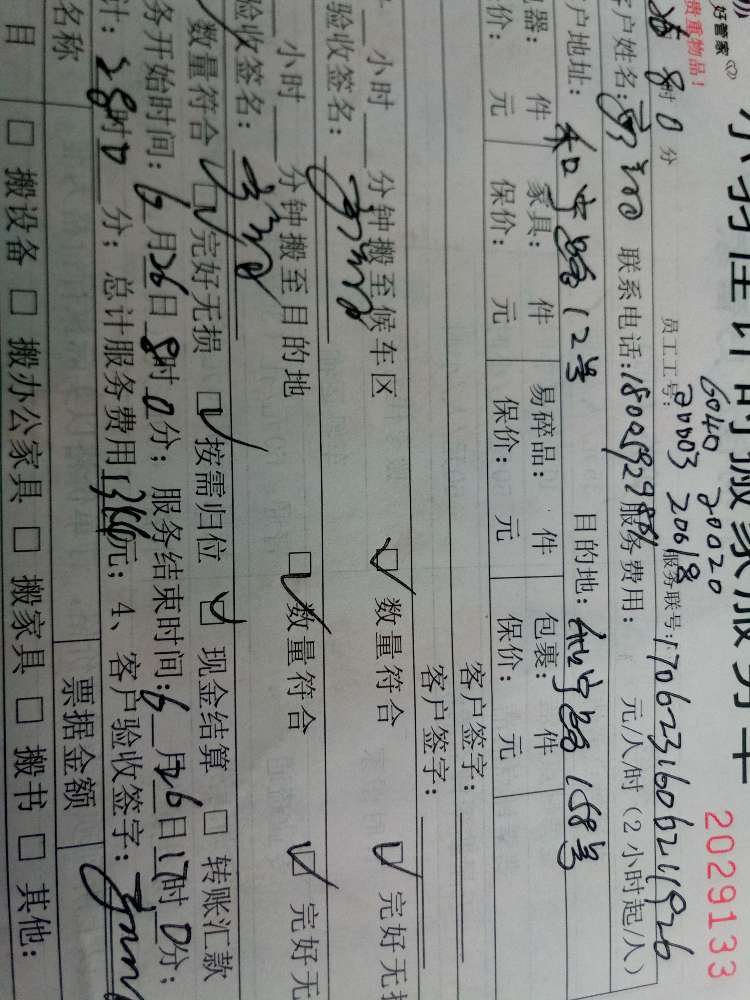 好管家
贵重物品！
2029133
8时0分
员工工号：
6040 20020
20003 20618
服务联号：1706231606211926
客户姓名：
联系电话：
服务费用：
元/人/时（2小时起/人）
客户地址：和宁路12号
目的地：和宁路158号
电器： 件 家具： 件 易碎品： 件 包裹： 件
保价： 元 保价： 元 保价： 元 保价： 元
客户签字：
客户签字：
小时 分钟搬至候车区 数量符合 完好无损
验收签名：
小时 分钟搬至目的地 数量符合 完好无
验收签名：
数量符合 完好无损 按需归位 现金结算 转账汇款
务开始时间：6月26日8时0分；服务结束时间：6月26日17时0分；
计：28时0分；总计服务费用 元；4、客户验收签字：
名称 票据金额
目 搬设备 搬办公家具 搬家具 搬书 其他：